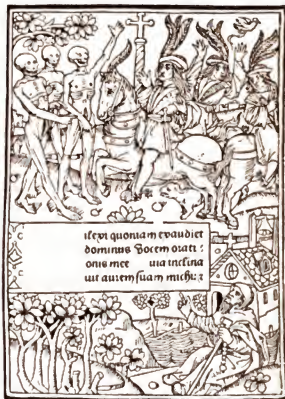 ilexi quoniam exaudiet
dominus vocem orati :
onis mee uia inclina
uit aurem suam michi: z